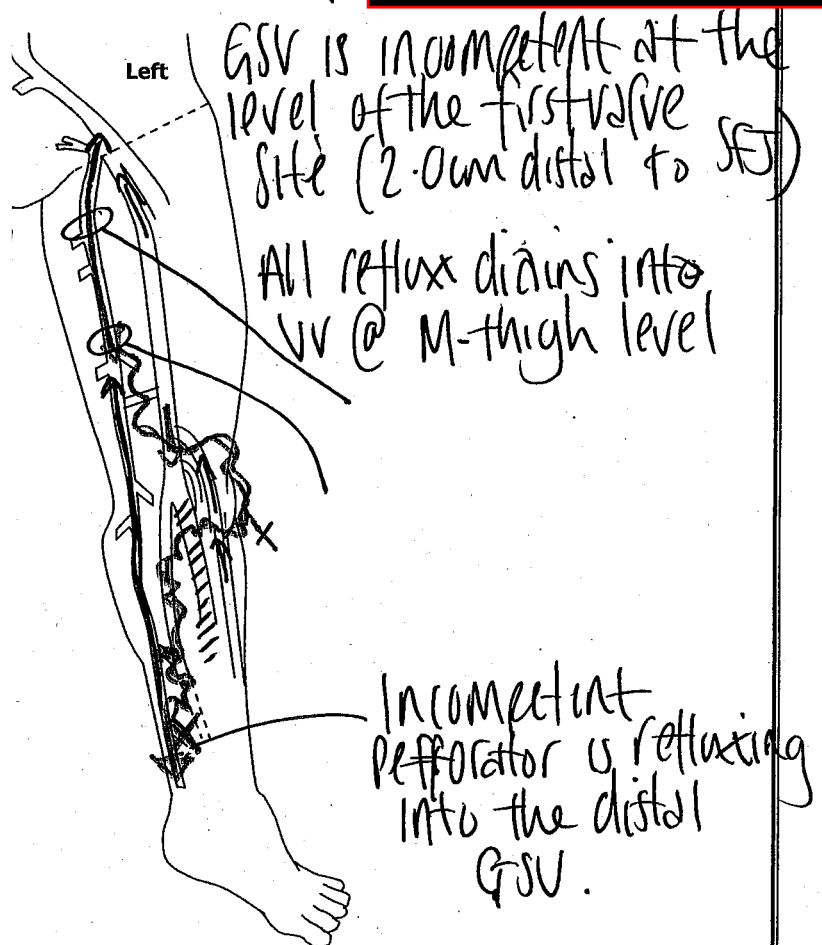 Left
GSV is incompetent at the
level of the first valve
site (2.0cm distal to SFJ)
All reflux drains into
VV @ M-thigh level
X
Incompetent
perforator is refluxing
into the distal
GSV.